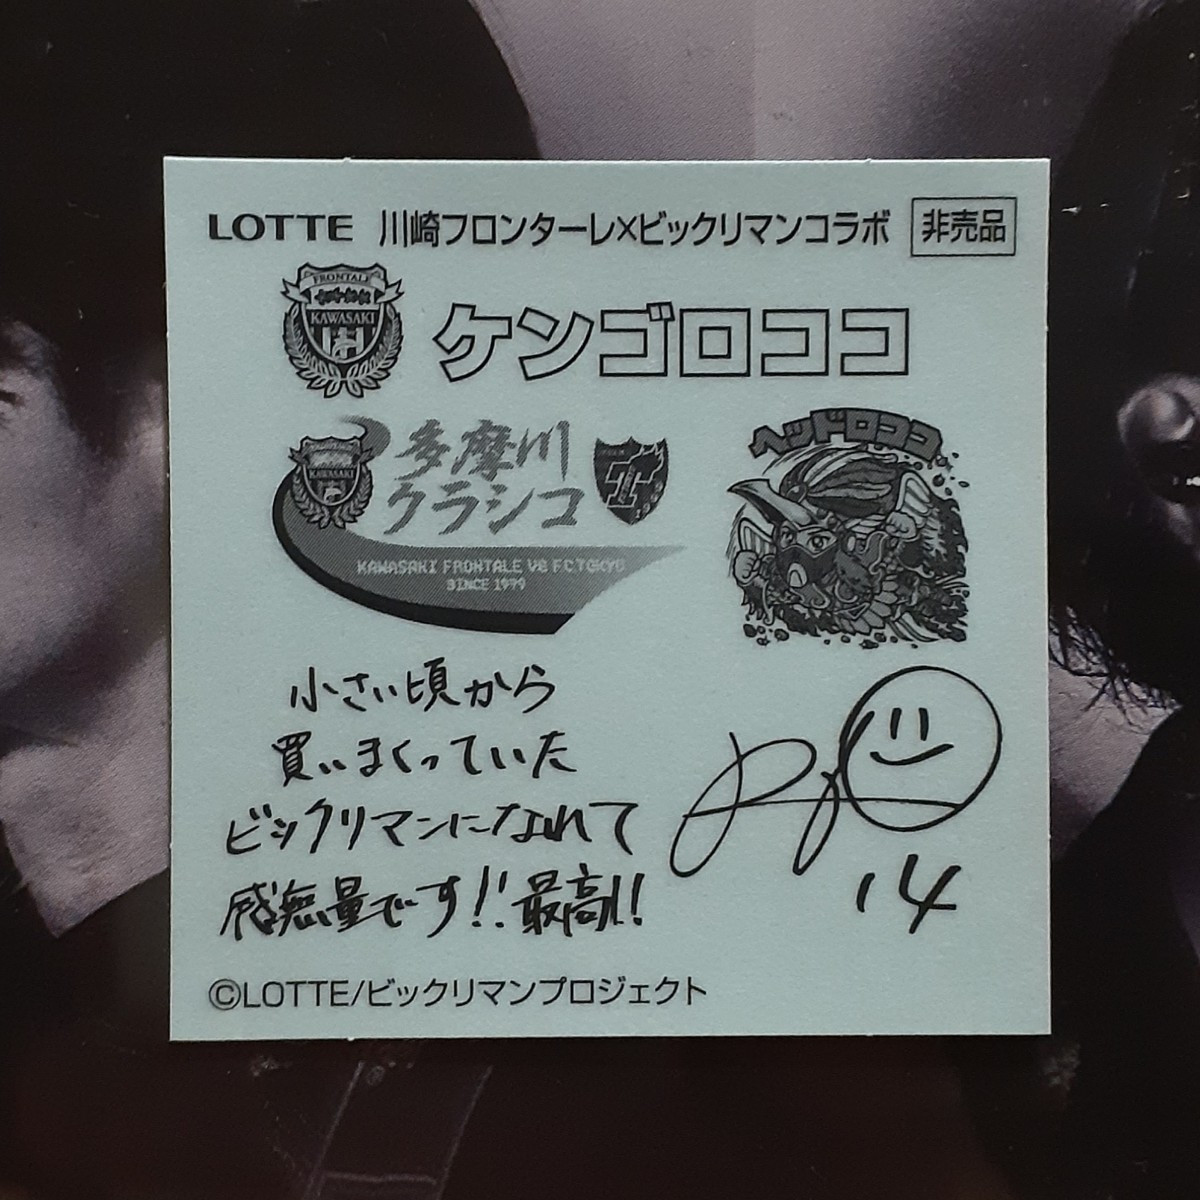 LOTTE 川崎フロンターレ×ビックリマンコラボ 非売品
FRONTALE
KAWASAKI
ケンゴロココ
多摩川
クラシコ
KAWASAKI
KAWASAKI FRONTALE VS F.C.TOKYO
SINCE 1999
ヘッドロココ
小さい頃から
買いまくっていた
ビックリマンになれて
感無量です!! 最高!!
14
©LOTTE/ビックリマンプロジェクト